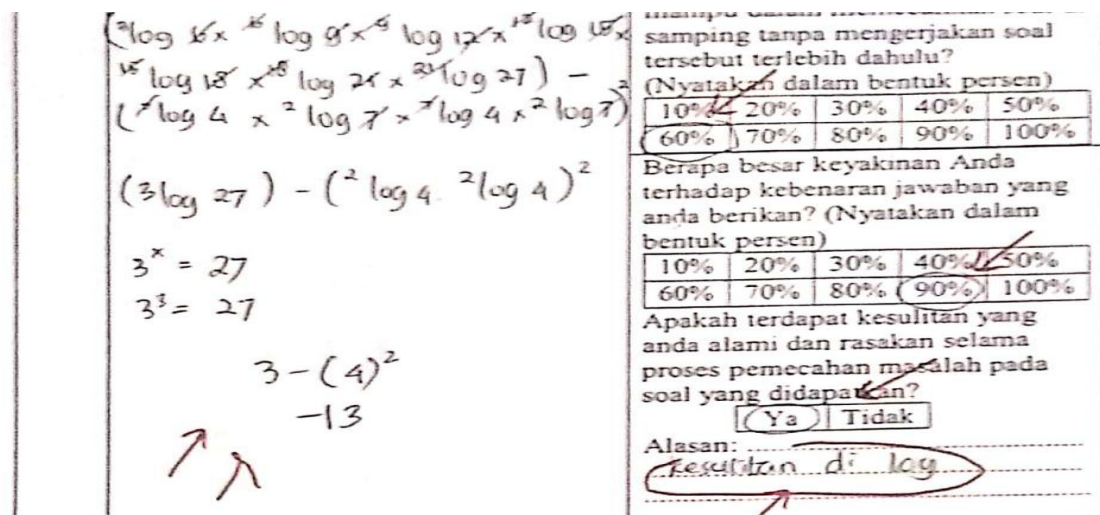 (³log 6 x ⁶log 9 x ⁹log 12 x ¹²log 15 x
¹⁵log 18 x ¹⁸log 21 x ²¹log 27) -
(⁷log 4 x ²log 7 x ⁷log 4 x ²log 7)²
(3log 27) - (²log 4 ²log 4)²
3ˣ = 27
3³ = 27
3 - (4)²
-13
samping tanpa mengerjakan soal
tersebut terlebih dahulu?
(Nyatakan dalam bentuk persen)
10% 20% 30% 40% 50%
60% 70% 80% 90% 100%
Berapa besar keyakinan Anda
terhadap kebenaran jawaban yang
anda berikan? (Nyatakan dalam
bentuk persen)
10% 20% 30% 40% 50%
60% 70% 80% 90% 100%
Apakah terdapat kesulitan yang
anda alami dan rasakan selama
proses pemecahan masalah pada
soal yang didapatkan?
Ya Tidak
Alasan:
Kesulitan di log